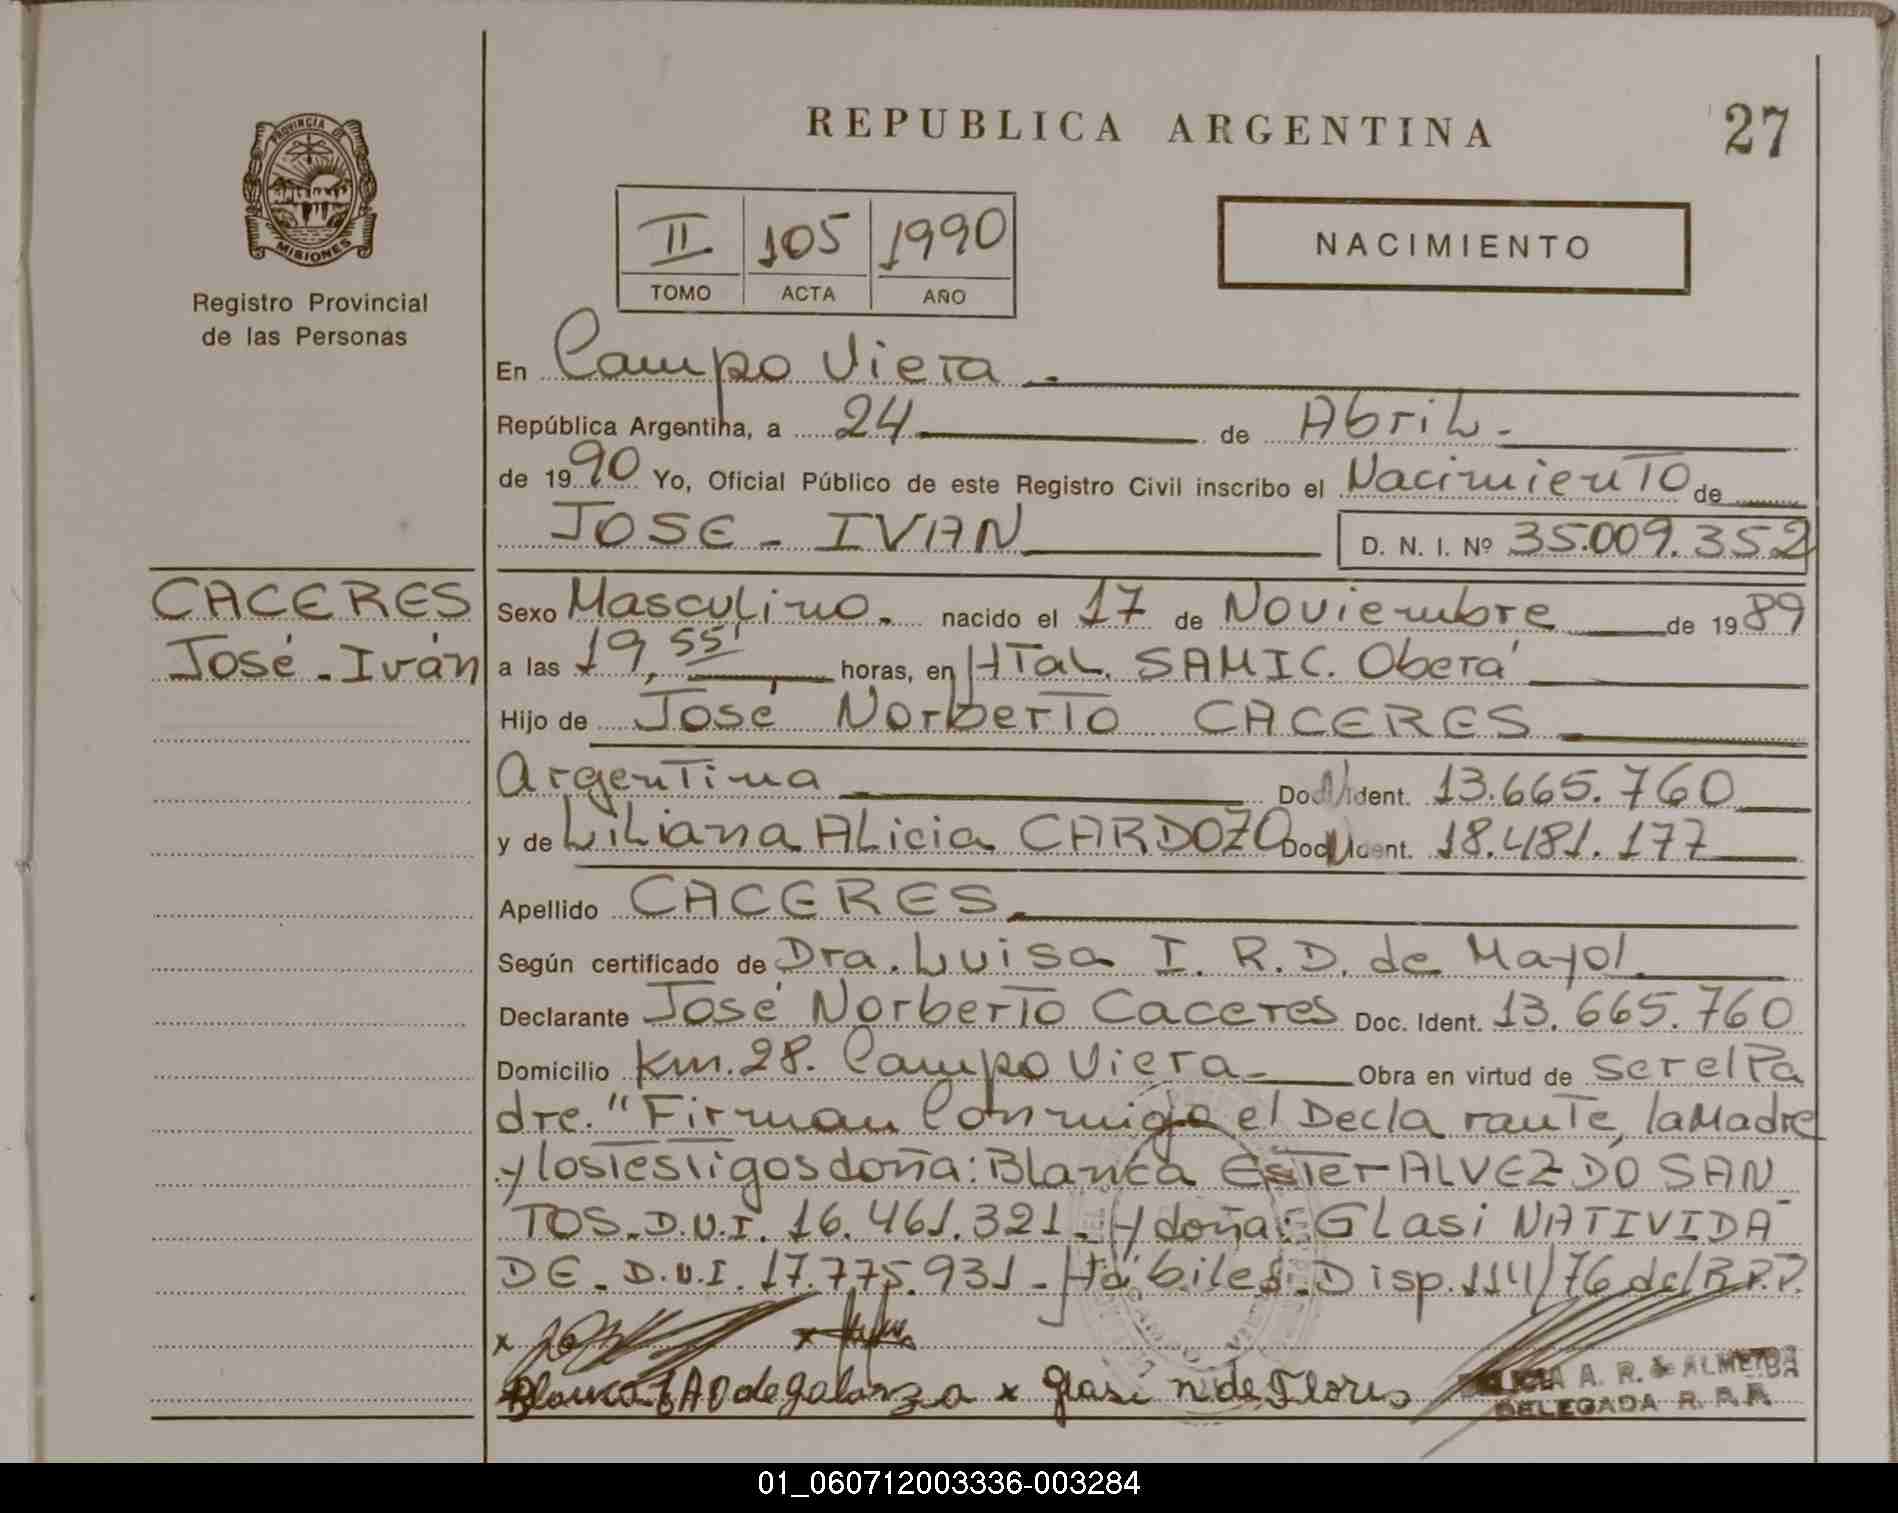 REPUBLICA ARGENTINA
27
PROVINCIA DE
MISIONES
Registro Provincial
de las Personas
II 105 1990
TOMO ACTA AÑO
NACIMIENTO
En Campo Viera.
República Argentina, a 24 de Abril.
de 1990 Yo, Oficial Público de este Registro Civil inscribo el Nacimiento de
JOSE - IVAN D. N. I. Nº 35.009.352
CACERES
José - Iván
Sexo Masculino. nacido el 17 de Noviembre de 1989
a las 19,55' horas, en Htal. SAMIC. Oberá
Hijo de José Norberto CACERES
Argentina Doc. Ident. 13.665.760
y de Liliana Alicia CARDOZO Doc. Ident. 18.481.177
Apellido CACERES
Según certificado de Dra. Luisa I. R. D. de Mayol
Declarante José Norberto Caceres Doc. Ident. 13.665.760
Domicilio Km. 28. Campo Viera - Obra en virtud de ser el Pa
dre. "Firman Conmigo el Declarante, la Madre
y los Testigos doña: Blanca Ester ALVEZ DO SAN
TOS. D.N.I. 16.461.321 - y doña: Glasi NATIVIDA
DE - D.N.I. 17.775.931 - Hábiles. Disp. 114/76 del R.P.P.
x x
Blanca E A D de Galarza x Glasi n. de Flores
A. R. de ALMEIDA
DELEGADA R. P. P.
01_060712003336-003284